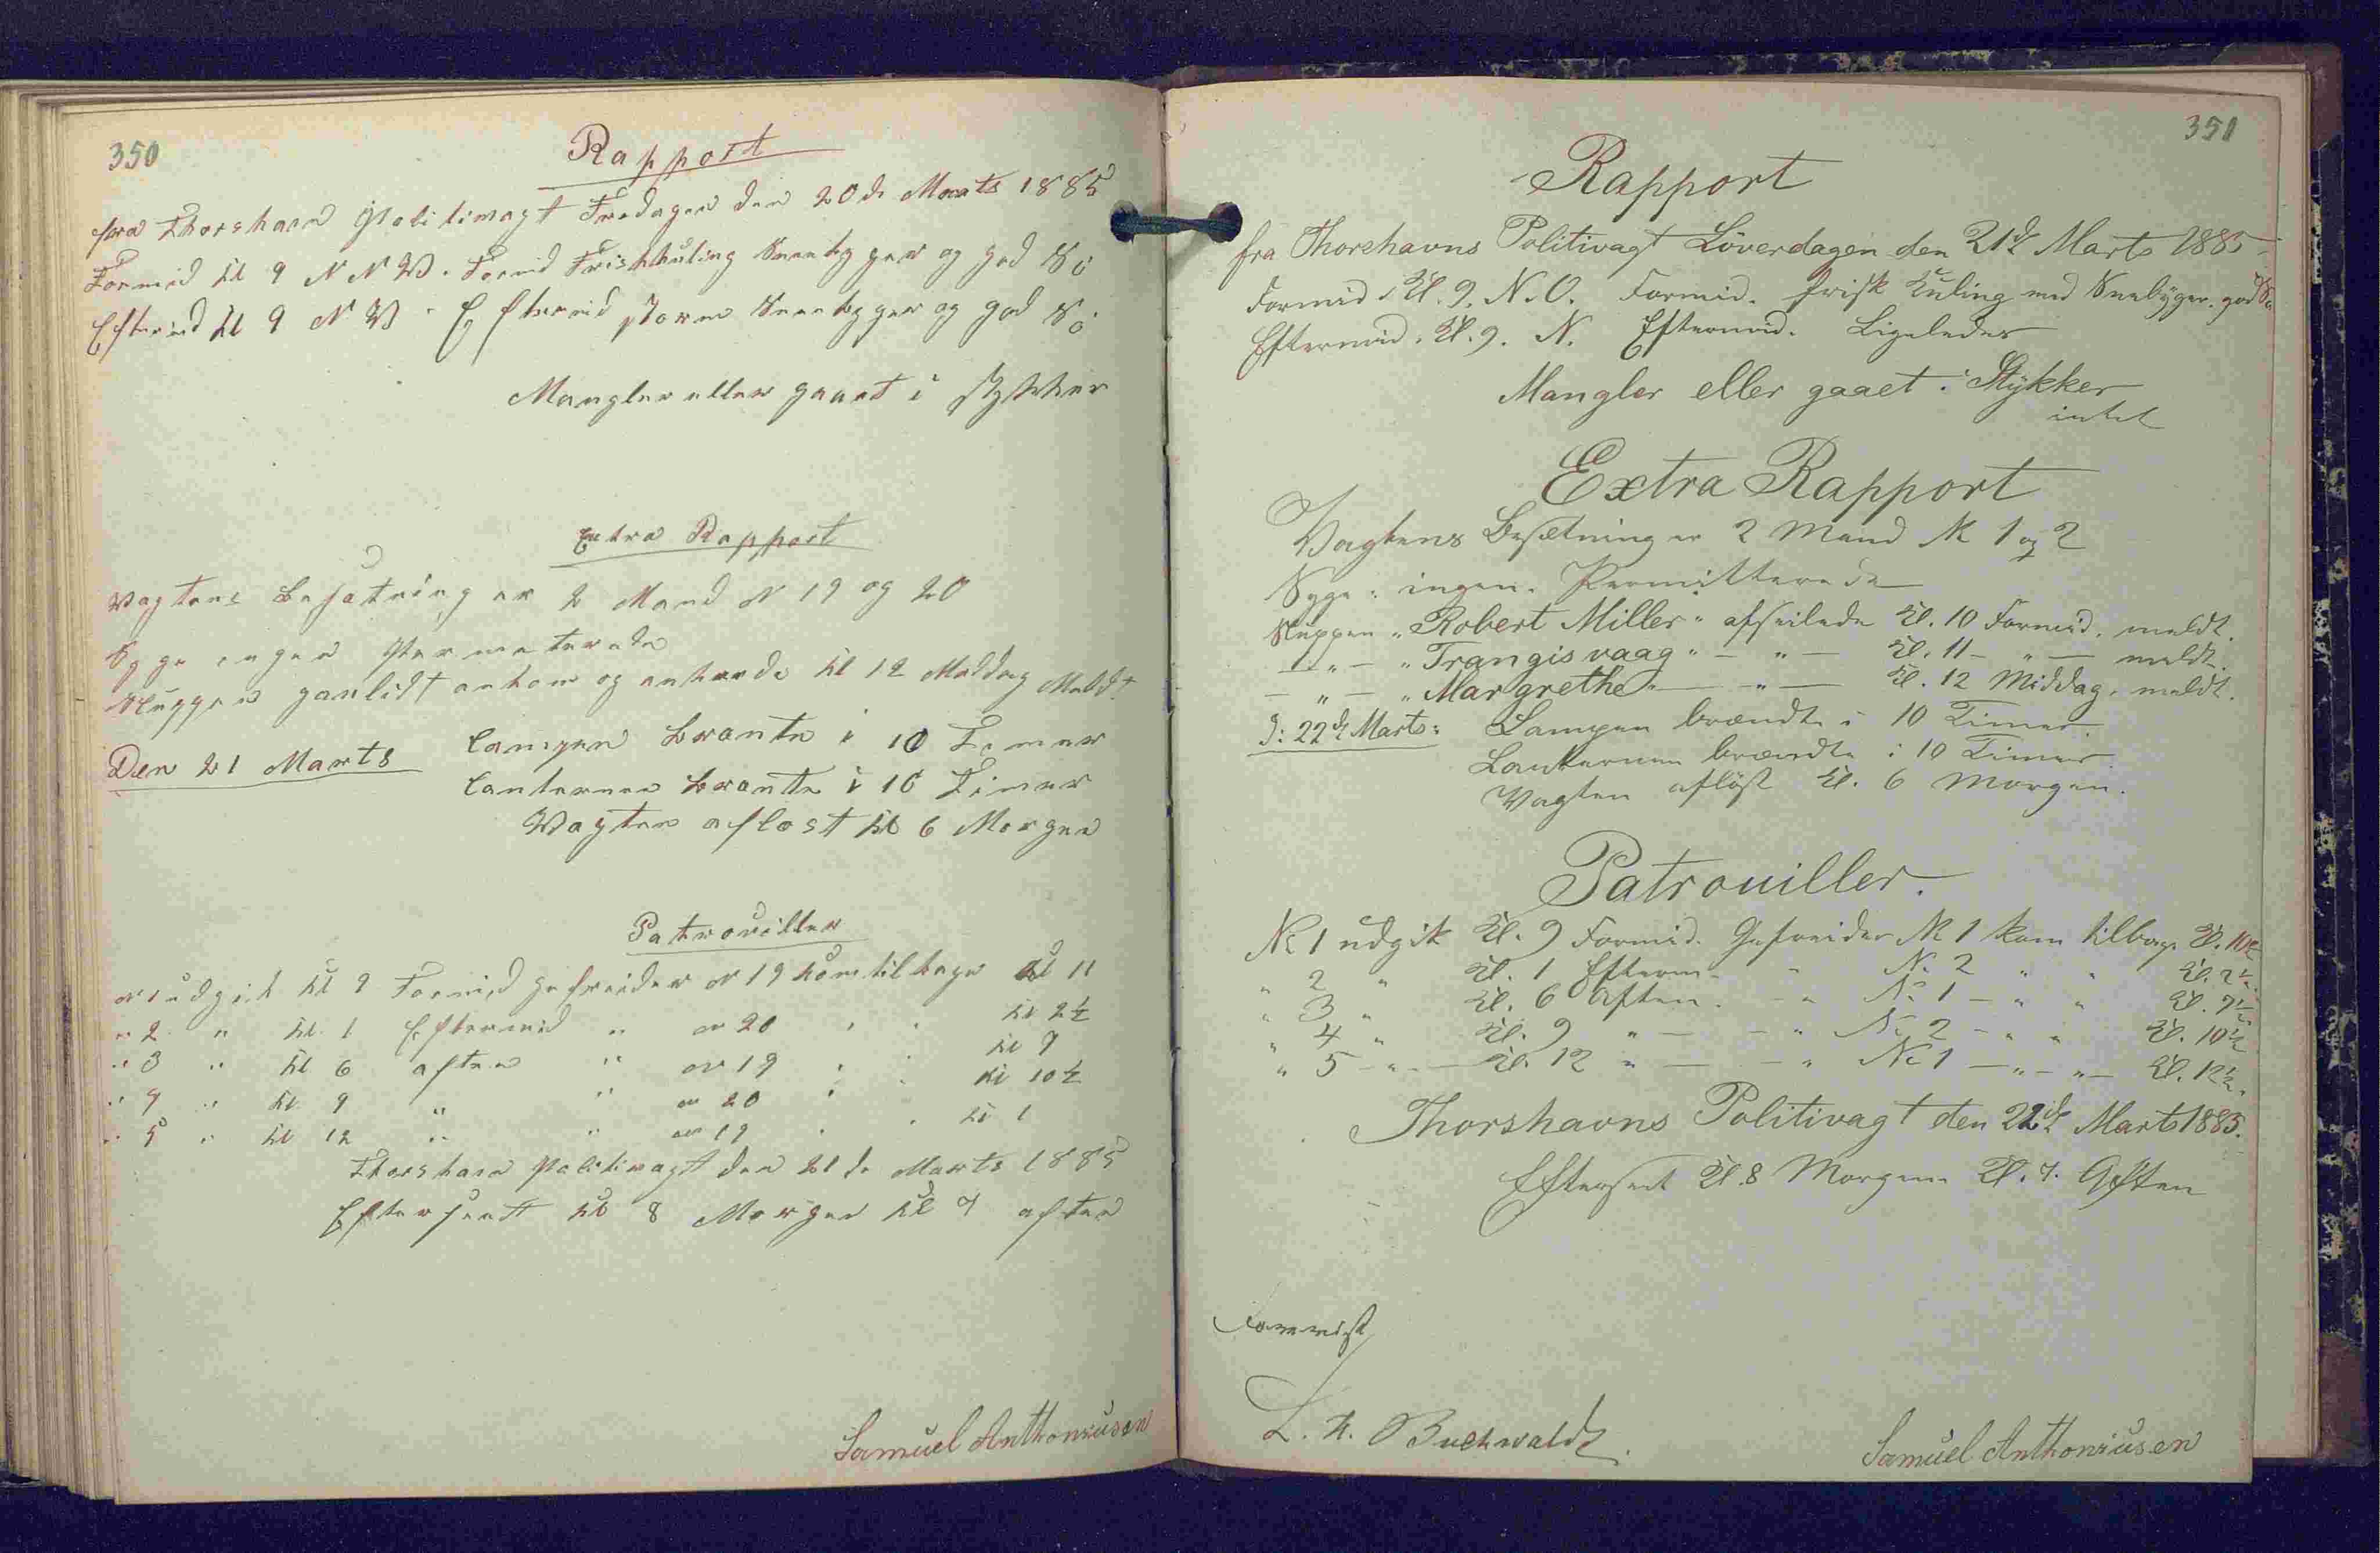 350
Rapport
fra Thorshavn Politivagt Fredagen den 20de Marts 1885
Formid Kl 9 N N W. Formid Friskkuling Sneebyger og god Sö
Eftermid Kl 9 N W. Eftermid storm Sneebyger og god Sö
Mangler eller gaaet i stykker
Extra Rapport
Vagtens Besatning er 2 Mand N 19 og 20
Syge ingen Permeterede
Sluppen ankom og ankrede Kl 12 Middag Meldt
Den 21 Marts
Lampen brante i 10 Timer
Lanternen brante i 10 Timer
Vagten aflost Kl 6 Morgen
Patrouiller
N 1 udgik Kl 9 Formid gefreider N 19 kom tilbage Kl 11
" 2 " Kl 1 Eftermid " N 20 " " Kl 2½
" 3 " Kl 6 aften " N 19 " " Kl 7
" 4 " Kl 9 " " N 20 " " Kl 10½
" 5 " Kl 12 " " N 19 " " Kl 1
Thorshavn Politivagt den 21de Marts 1885
Efterseett Kl 8 Morgen Kl 7 aften
Samuel Anthoniusen
351
Rapport
fra Thorshavns Politivagt Löverdagen den 21de Marts 1885
Formid. Kl. 9. N.O. Formid. frisk Kuling med Sneebyger. god Sö
Eftermid. Kl. 9. N. Eftermid. Ligeledes
Mangler eller gaaet i Stykker
intet
Extra Rapport
Vagtens Besætning er 2 Mand No 1 og 2
Syge: ingen. Permitterede
Sluppen "Robert Miller" afseilede Kl. 10 Formid. meldt.
— " — "Trangisvaag" — " — Kl. 11 — " — meldt.
— " — "Margrethe" — " — Kl. 12 Middag. meldt.
D: 22de Marts: Lampen brændte i 10 Timer.
Lanternen brændte i 10 Timer.
Vagten aflöst Kl. 6 Morgen.
Patrouiller.
No 1 udgik Kl. 9 Formid. Gefreider No 1 kom tilbage Kl. 10½
" 2 " Kl. 1 Efterm — " No 2 " " Kl. 2½
" 3 " Kl. 6 Aften. — " No 1 — " " Kl. 7½
" 4 " Kl. 9 " — — " No 2 — " " Kl. 10½
" 5 — " — Kl. 12 " — — " No 1 — " — " — Kl. 12½.
Thorshavns Politivagt den 22de Marts 1885.
Efterseet Kl. 8 Morgen Kl. 7. Aften
Forevist
Buchwaldt.
Samuel Anthoniusen